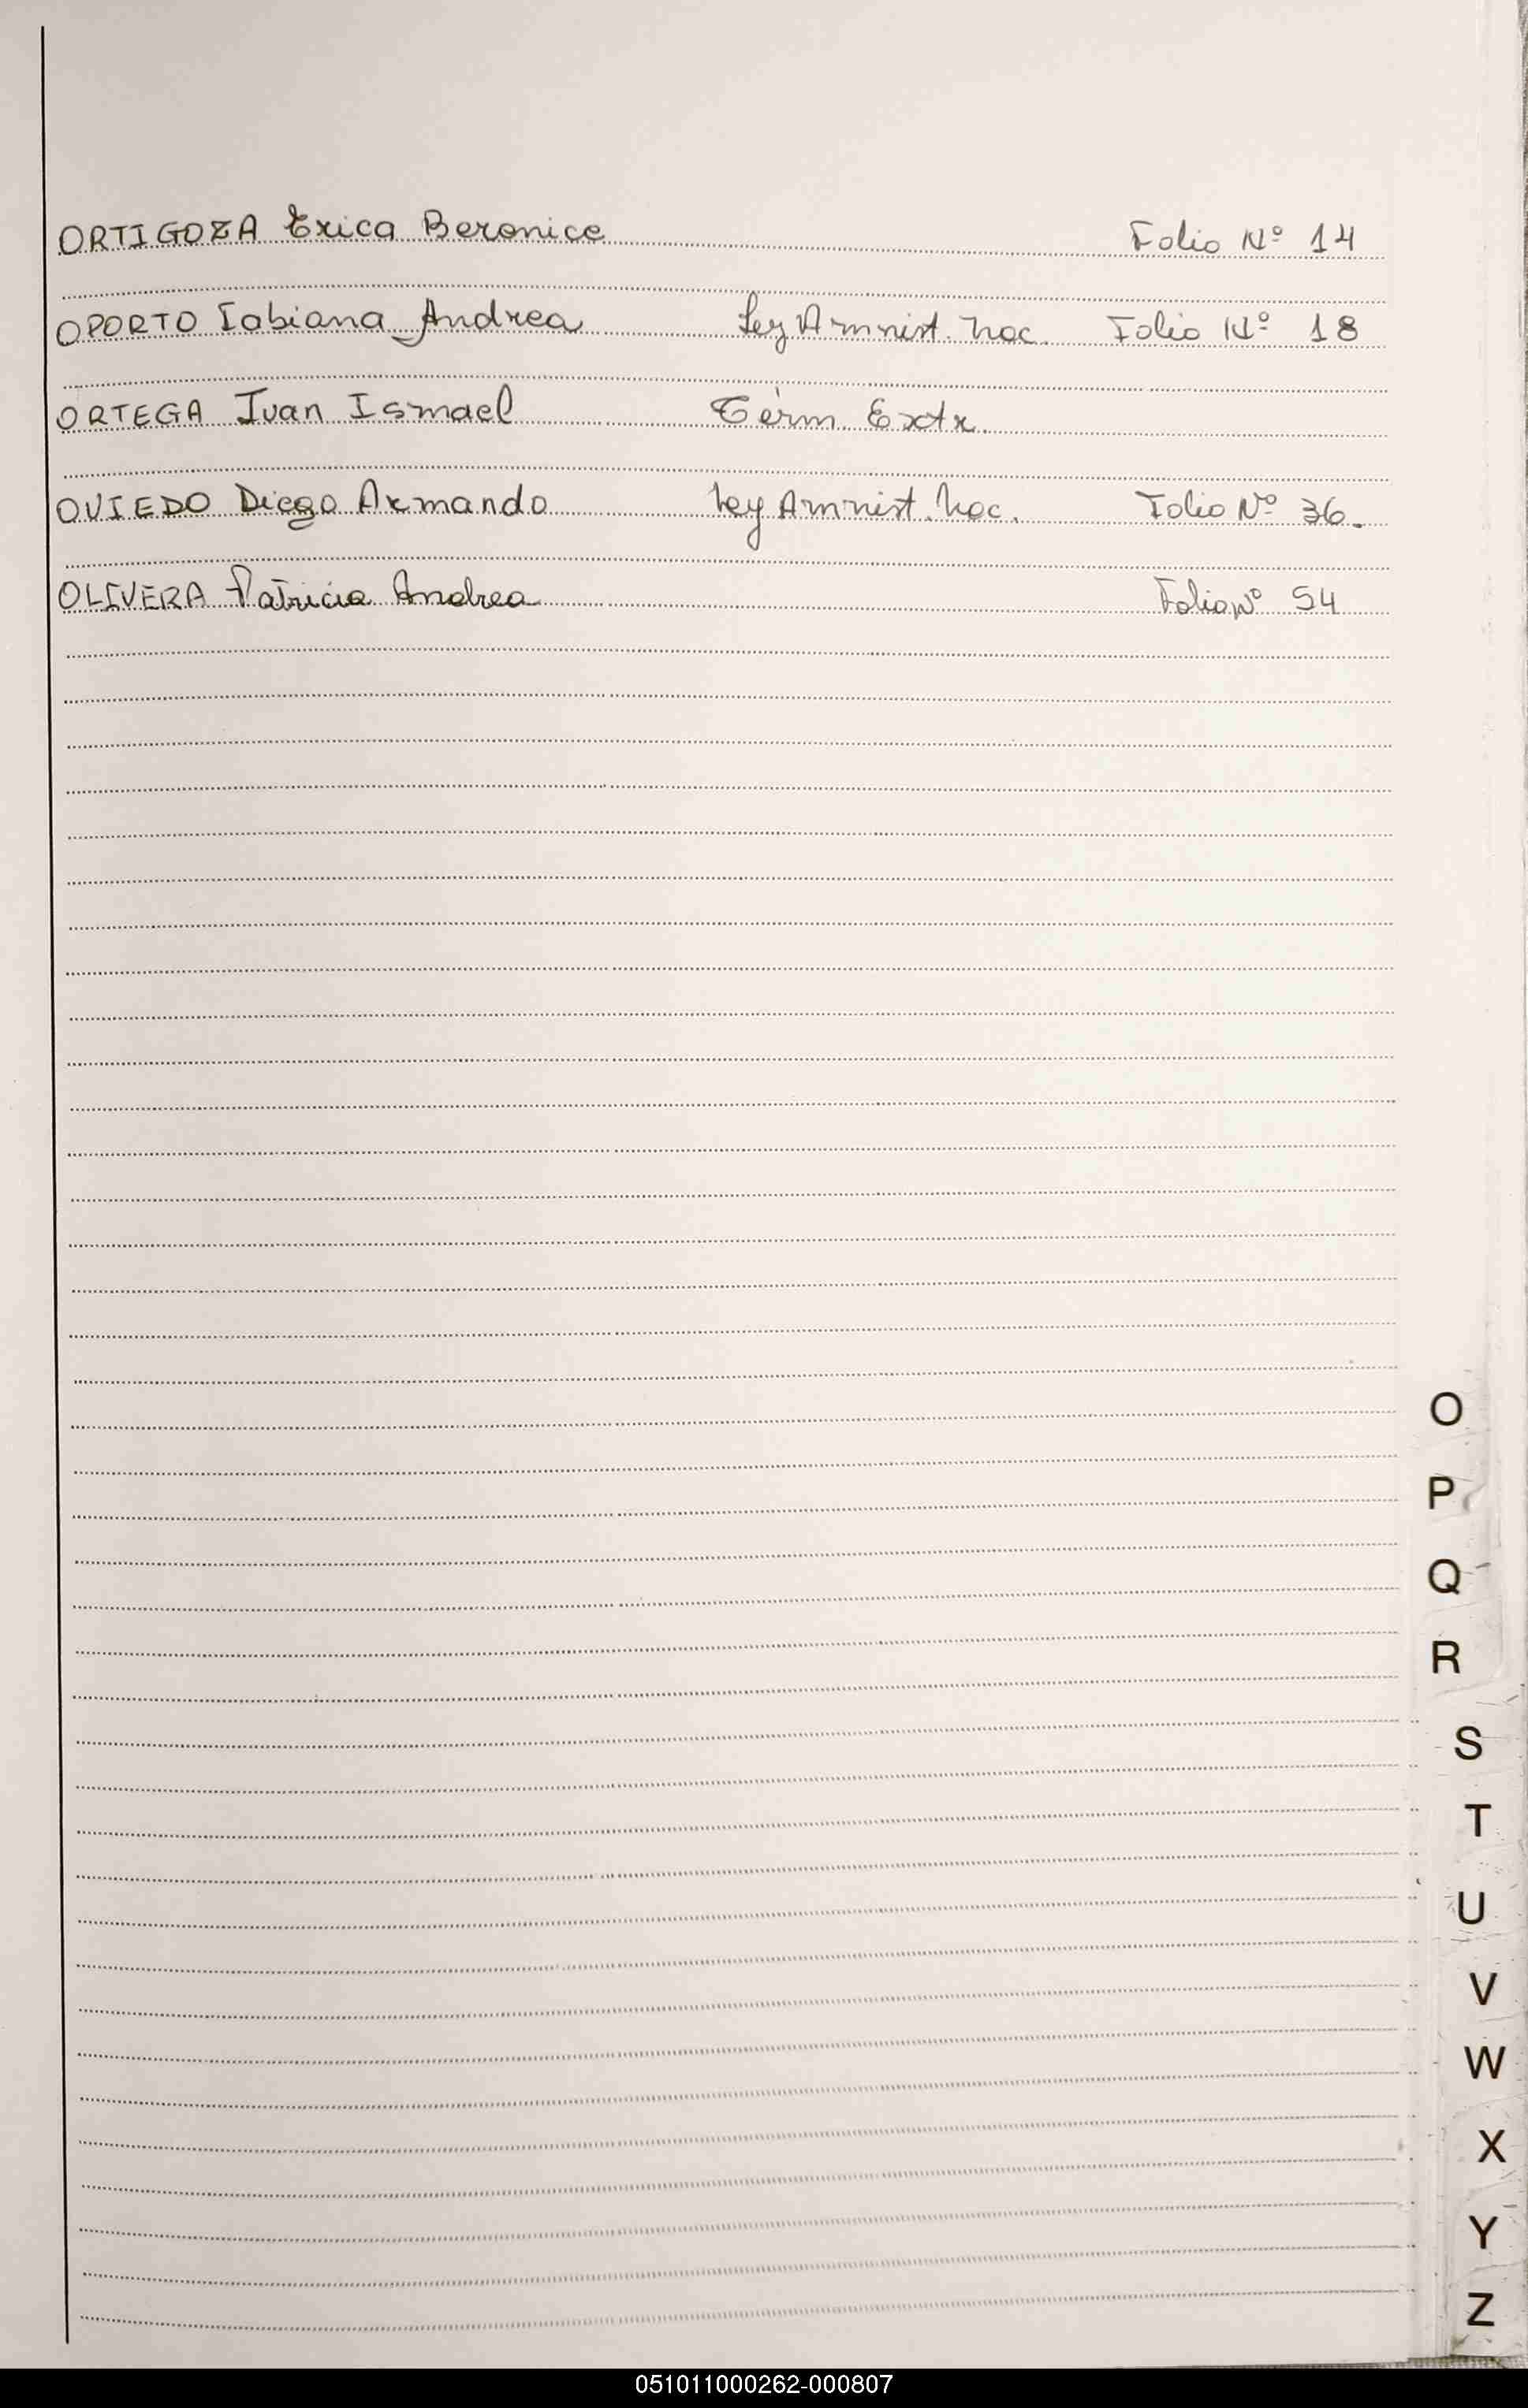 ORTIGOZA Erica Beronice Folio Nº 14
OPORTO Fabiana Andrea Ley Amnist. Nac. Folio Nº 18
ORTEGA Ivan Ismael Térm. Extr.
OVIEDO Diego Armando Ley Amnist. Nac. Folio Nº 36.
OLIVERA Patricia Andrea Folio Nº 54
O
P
Q
R
S
T
U
V
W
X
Y
Z
051011000262-000807